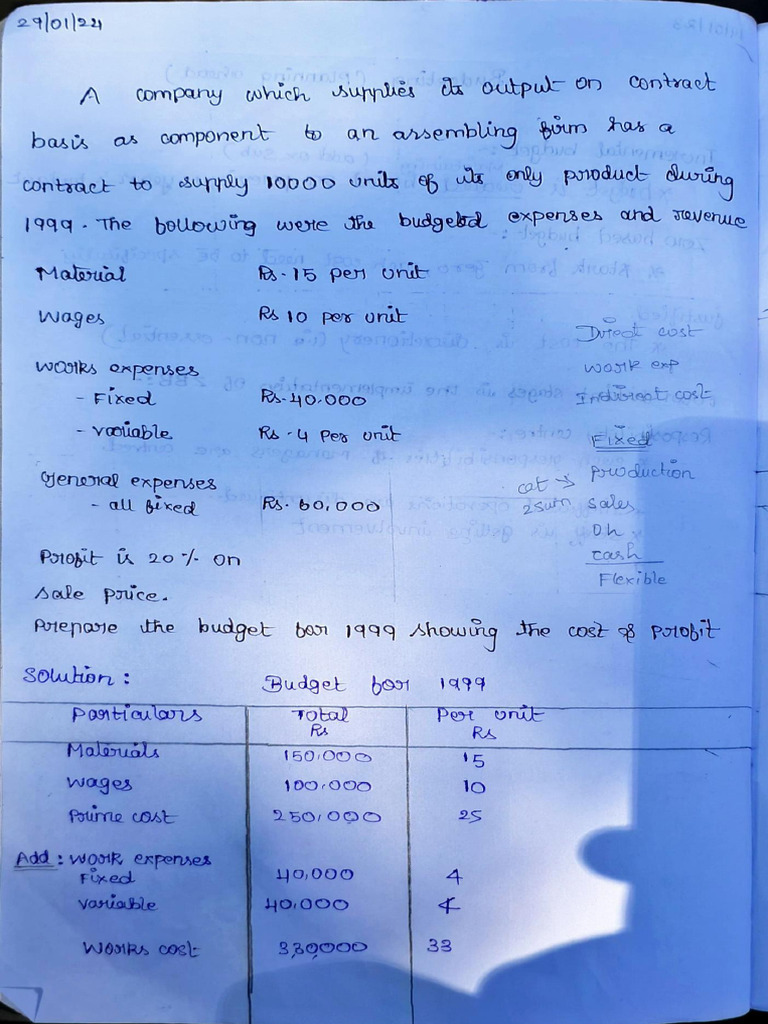 29/01/24
A company which supplies its output on contract
basis as component to an assembling firm has a
contract to supply 10000 units of its only product during
1999. The following were the budgeted expenses and revenue
Material Rs. 15 per unit
Wages Rs 10 per unit
Direct cost
works expenses work exp
- Fixed Rs. 40,000 Indirect cost
- variable Rs. 4 per unit Fixed
General expenses cat → production
- all fixed Rs. 60,000 2sum sales
Oh
Profit is 20% on cash
Flexible
sale price.
Prepare the budget for 1999 showing the cost of profit
Solution: Budget for 1999
Particulars Total Per unit
Rs Rs
Materials 150,000 15
wages 100,000 10
Prime cost 250,000 25
Add: work expenses
Fixed 40,000 4
variable 40,000 4
Works cost 330,000 33